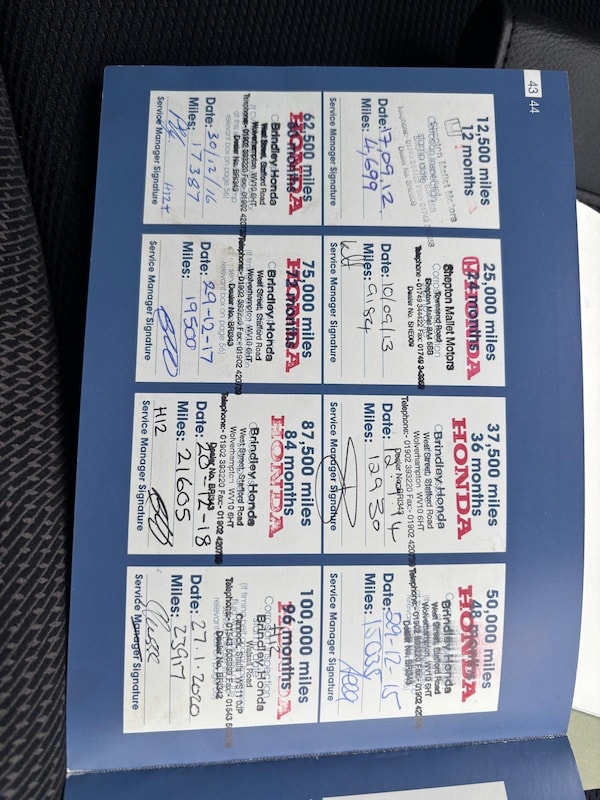 43 44
12,500 miles
12 months
Shepton Mallet Motors
Date: 17.09.12
Miles: 4,699
Service Manager Signature
25,000 miles
24 months
HONDA
Shepton Mallet Motors
Townsend Road
Shepton Mallet BA4 5BB
Telephone - 01749 344422 Fax: 01749
Dealer No. SHE009
Date: 10/09/13
Miles: 9184
Service Manager Signature
37,500 miles
36 months
HONDA
Brindley Honda
West Street, Stafford Road
Wolverhampton WV10 6HT
Telephone:- 01902 393220 Fax:- 01902 420799
Dealer No. BRI343
Date:
Miles: 12930
Service Manager Signature
50,000 miles
48 months
HONDA
Brindley Honda
West Street, Stafford Road
Wolverhampton WV10 6HT
Dealer No. BRI343
Date: 29-12-15
Miles: 15035
Service Manager Signature
62,500 miles
HONDA
Brindley Honda
West Street, Stafford Road
Wolverhampton WV10 6HT
Dealer No. BRI343
relevant box on page 56)
Date: 30/12/16
Miles: 17387
H124
Service Manager Signature
75,000 miles
72 months
HONDA
Brindley Honda
West Street, Stafford Road
Wolverhampton WV10 6HT
Telephone:- 01902 393220 Fax:- 01902
Dealer No. BRI343
relevant box on page 56)
Date: 29-12-17
Miles: 19500
Service Manager Signature
87,500 miles
84 months
HONDA
Brindley Honda
West Street, Stafford Road
Wolverhampton WV10 6HT
Telephone:- 01902 393220 Fax:- 01902
Dealer No. BRI343
Date:
Miles: 21605
H12
Service Manager Signature
100,000 miles
96 months
H12
Brindley Honda
Walsall Road
Cannock, Staffs. WS11 0JP
Dealer No. BRI342
Date: 27.1.2020
Miles: 23917
Service Manager Signature